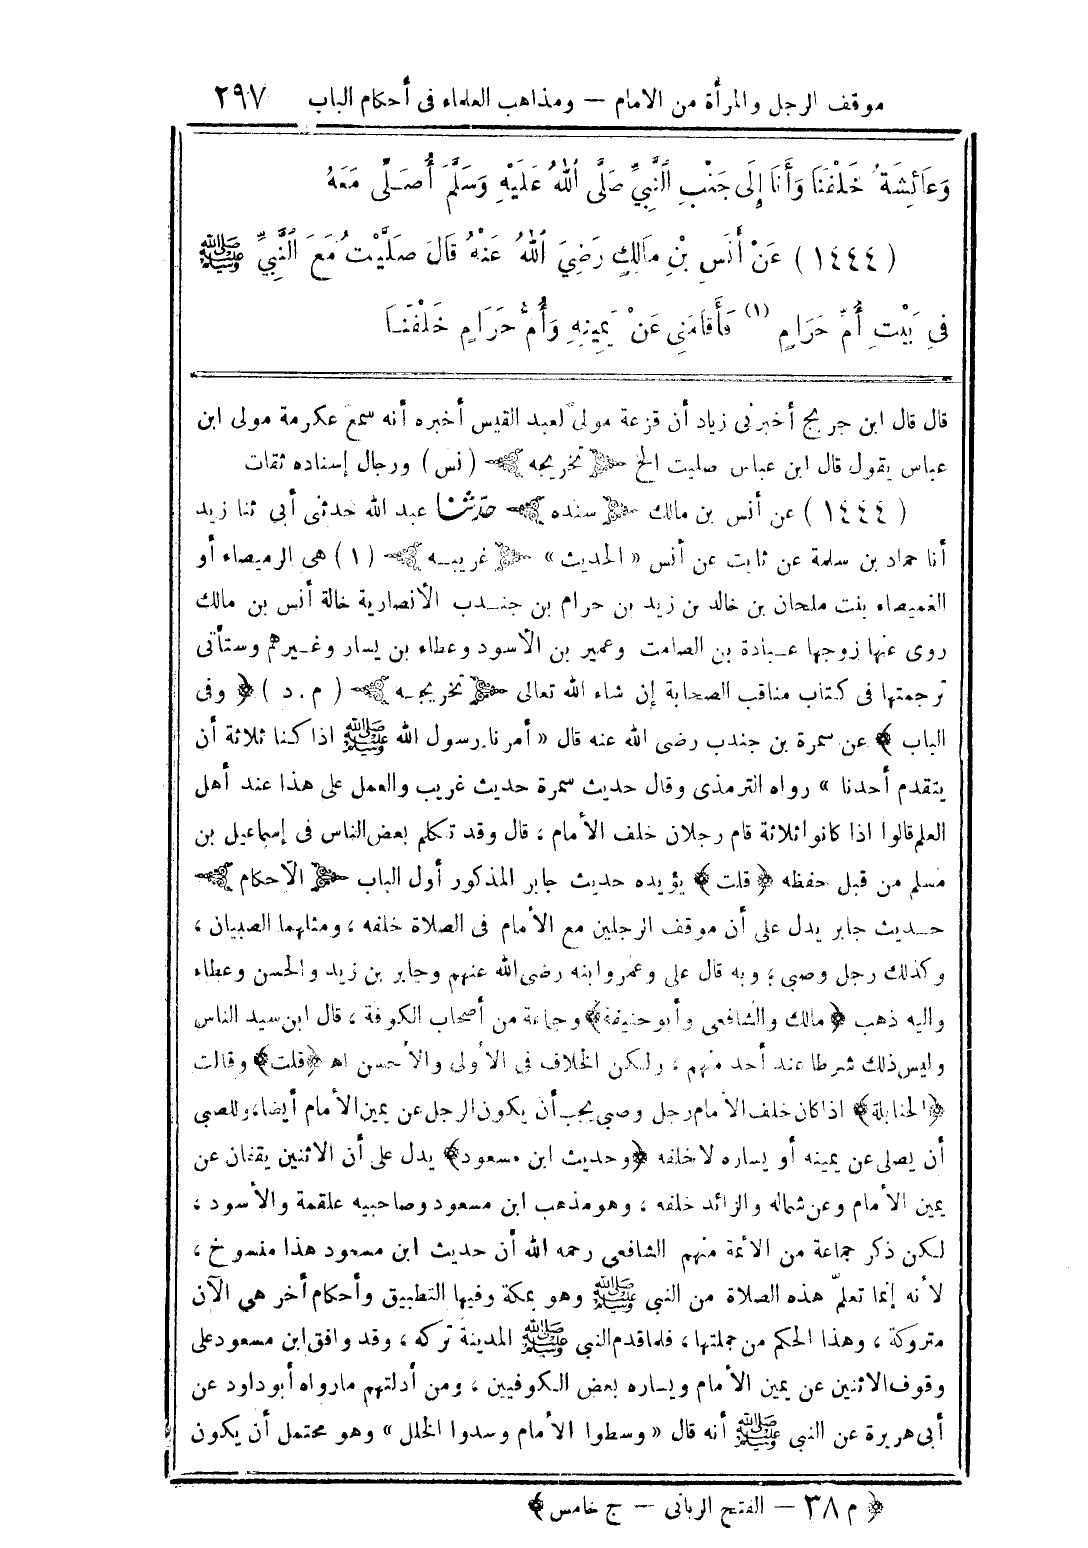 موقف الرجل والمرأة من الامام — ومذاهب العلماء فى أحكام الباب ٢٩٧
وَعَائِشَةُ خَلْفَنَا وَأَنَا إِلَى جَنْبِ النَّبِيِّ صَلَّى اللهُ عَلَيْهِ وَسَلَّمَ أُصَلِّى مَعَهُ
( ١٤٤٤ ) عَنْ أَنَسِ بْنِ مَالِكٍ رَضِيَ اللهُ عَنْهُ قَالَ صَلَّيْتُ مَعَ النَّبِيِّ ﷺ
فِى بَيْتِ أُمِّ حَرَامٍ (١) فَأَقَامَنِى عَنْ يَمِينِهِ وَأُمُّ حَرَامٍ خَلْفَنَا
قال قال ابن جريج أخبرنى زياد أن قزعة مولى لعبد القيس أخبره أنه سمع عكرمة مولى ابن
عباس يقول قال ابن عباس صليت الخ ﴿ تخريجه ﴾ ( نس ) ورجال إسناده ثقات
( ١٤٤٤ ) عن أنس بن مالك ﴿ سنده ﴾ حدّثنا عبد الله حدثنى أبى ثنا زيد
أنا حماد بن سلمة عن ثابت عن أنس « الحديث » ﴿ غريبـه ﴾ ( ١ ) هى الرميصاء أو
الغميصاء بنت ملحان بن خالد بن زيد بن حرام بن جنـدب الأنصارية خالة أنس بن مالك
روى عنها زوجها عبادة بن الصامت وعمير بن الأسود وعطاء بن يسار وغيرهم وستأتى
ترجمتها فى كتاب مناقب الصحابة إن شاء الله تعالى ﴿ تخريجـه ﴾ ( م . د ) ﴿ وفى
الباب ﴾ عن سمرة بن جندب رضى الله عنه قال « أمرنا رسول الله ﷺ اذا كنا ثلاثة أن
يتقدم أحدنا » رواه الترمذى وقال حديث سمرة حديث غريب والعمل على هذا عند أهل
العلم قالوا اذا كانوا ثلاثة قام رجلان خلف الأمام ، قال وقد تكلم بعض الناس فى إسماعيل بن
مسلم من قبل حفظه ﴿ قلت ﴾ يؤيده حديث جابر المذكور أول الباب ﴿ الأحكام ﴾
حـديث جابر يدل على أن موقف الرجلين مع الأمام فى الصلاة خلفه ، ومثلهما الصبيان ،
وكذلك رجل وصبى ؛ وبه قال على وعمر وابنه رضى الله عنهم وجابر بن زيد والحسن وعطاء
واليه ذهب ﴿ مالك والشافعى وأبو حنيفة ﴾ وجماعة من أصحاب الكوفة ، قال ابن سيد الناس
وليس ذلك شرطا عند أحد منهم ، ولكن الخلاف فى الأولى والأحسن اه ﴿ قلت ﴾ وقالت
﴿ الحنابلة ﴾ اذا كان خلف الأمام رجل وصبى يجب أن يكون الرجل عن يمين الأمام أيضا، وللصبى
أن يصلى عن يمينه أو يساره لا خلفه ﴿ وحديث ابن مسعود ﴾ يدل على أن الاثنين يقفان عن
يمين الأمام وعن شماله والزائد خلفه ، وهو مذهب ابن مسعود وصاحبيه علقمة والأسود ،
لكن ذكر جماعة من الائمة منهم الشافعى رحمه الله أن حديث ابن مسعود هذا منسوخ ،
لأنه إنما تعلّم هذه الصلاة من النبى ﷺ وهو بمكة وفيها التطبيق وأحكام أخر هي الآن
متروكة ، وهذا الحكم من جملتها ، فلما قدم النبى ﷺ المدينة تركه ، وقد وافق ابن مسعود على
وقوف الاثنين عن يمين الأمام ويساره بعض الكوفيين ، ومن أدلتهم مارواه أبو داود عن
أبى هريرة عن النبى ﷺ أنه قال « وسطوا الأمام وسدوا الخلل » وهو محتمل أن يكون
﴿ م ٣٨ — الفتح الربانى — ج خامس ﴾